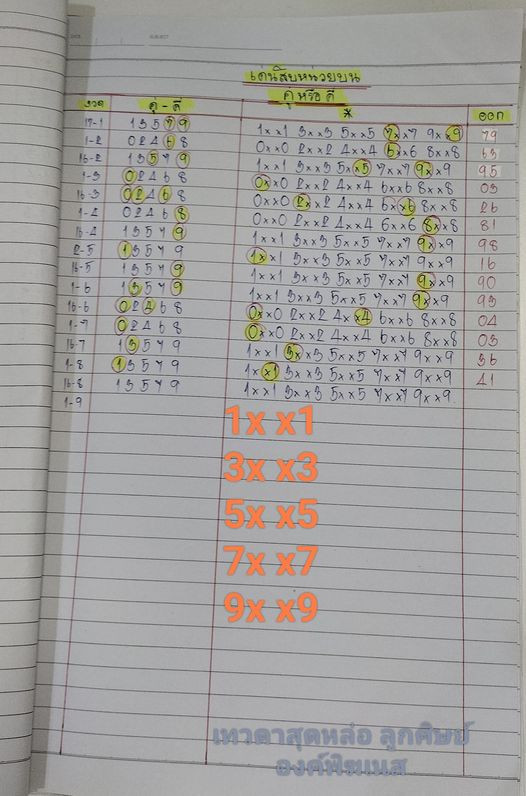 เด่นสิบหน่วยบน
งวด คู่ - คี่ คู่ หรือ คี่ * ออก
17-1 1 3 5 7 9 1xx1 3xx3 5xx5 7xx7 9xx9 79
1-2 0 2 4 6 8 0xx0 2xx2 4xx4 6xx6 8xx8 63
16-2 1 3 5 7 9 1xx1 3xx3 5xx5 7xx7 9xx9 95
1-3 0 2 4 6 8 0xx0 2xx2 4xx4 6xx6 8xx8 03
16-3 0 2 4 6 8 0xx0 2xx2 4xx4 6xx6 8xx8 26
1-4 0 2 4 6 8 0xx0 2xx2 4xx4 6xx6 8xx8 81
16-4 1 3 5 7 9 1xx1 3xx3 5xx5 7xx7 9xx9 98
2-5 1 3 5 7 9 1xx1 3xx3 5xx5 7xx7 9xx9 16
16-5 1 3 5 7 9 1xx1 3xx3 5xx5 7xx7 9xx9 90
1-6 1 3 5 7 9 1xx1 3xx3 5xx5 7xx7 9xx9 93
16-6 0 2 4 6 8 0xx0 2xx2 4xx4 6xx6 8xx8 04
1-7 0 2 4 6 8 0xx0 2xx2 4xx4 6xx6 8xx8 03
16-7 1 3 5 7 9 1xx1 3xx3 5xx5 7xx7 9xx9 36
1-8 1 3 5 7 9 1xx1 3xx3 5xx5 7xx7 9xx9 41
16-8 1 3 5 7 9 1xx1 3xx3 5xx5 7xx7 9xx9
1-9
1x x1
3x x3
5x x5
7x x7
9x x9
เทวดาสุดหล่อ ลูกศิษย์
องค์พิรแนส